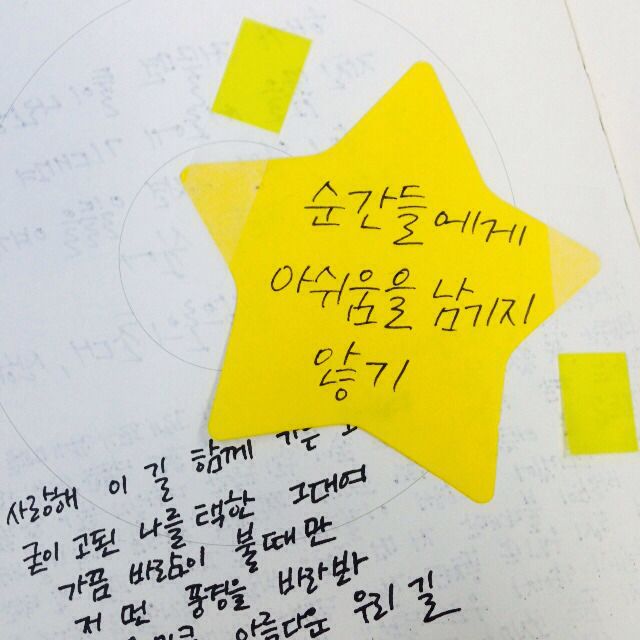 순간들에게
아쉬움을 남기지
않기
사랑해 이 길 함께
굳이 고된 나를 택한 그대여
가끔 바람이 불때만
저 먼 풍경을 바라봐
아름다운 우리 길